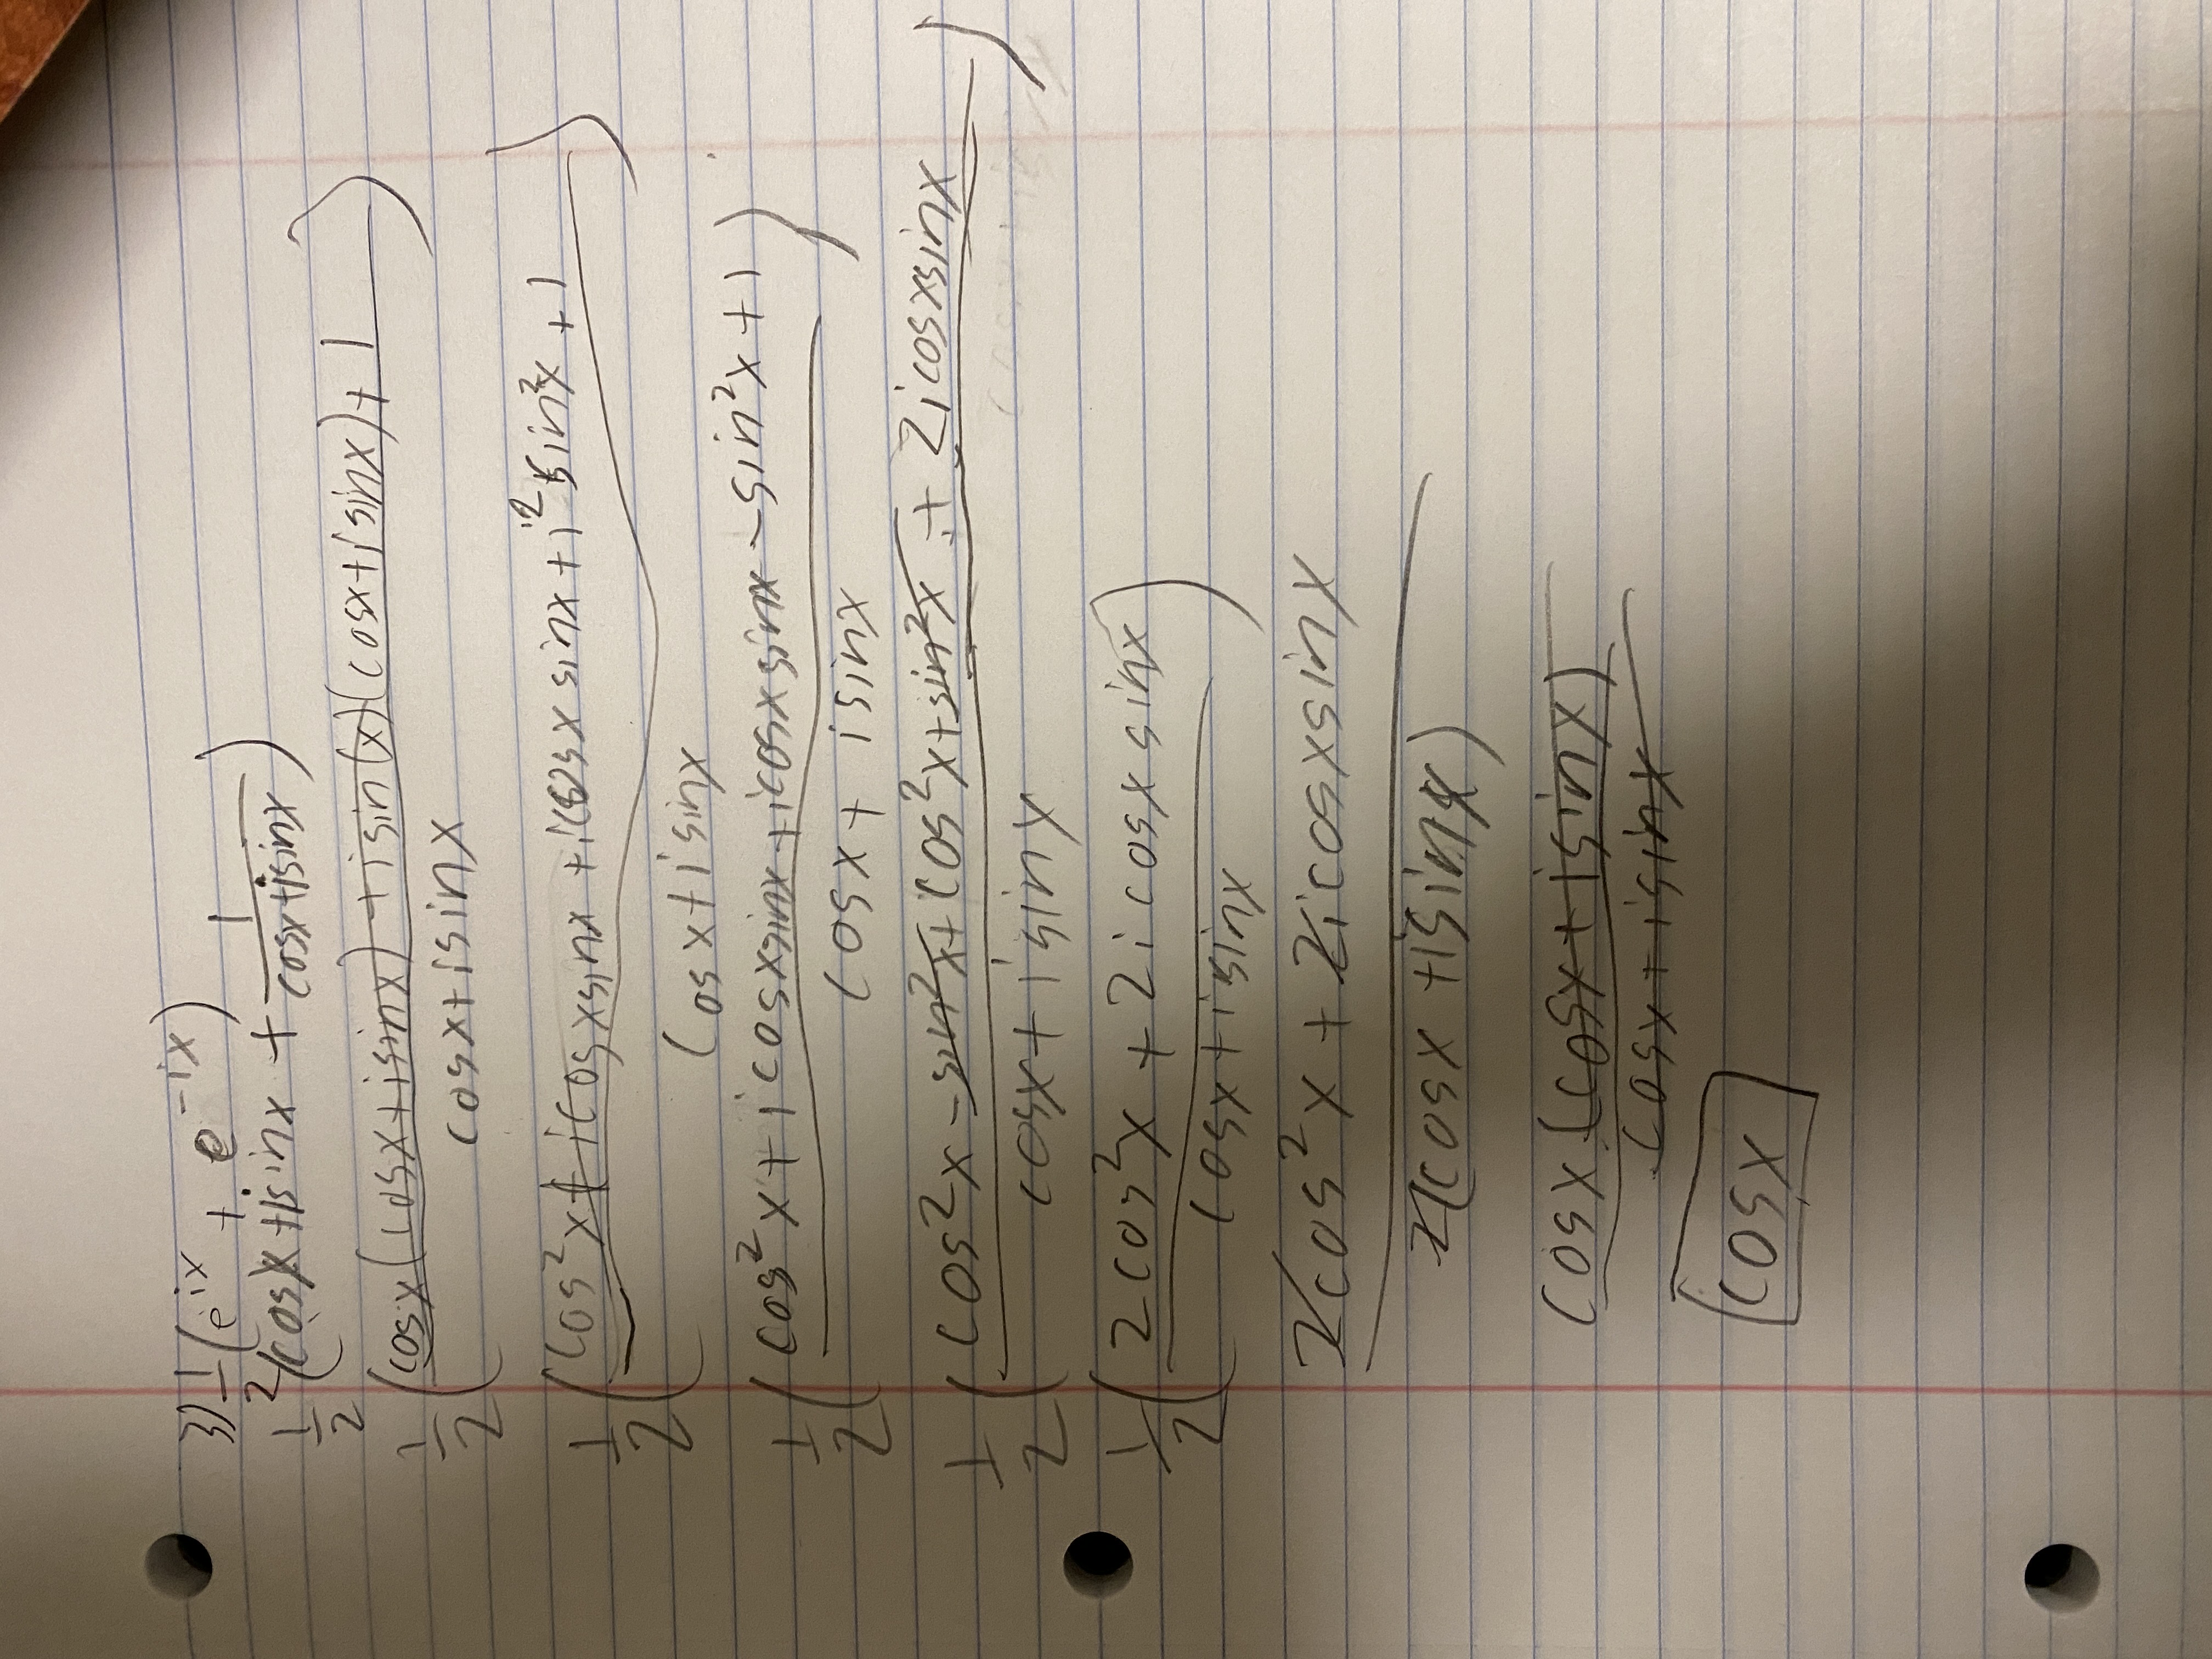 3) 1/2 (e^{ix} + e^{-ix})
1/2 (cosx + isinx + 1/(cosx+isinx))
1/2 ((cosx(cosx+isinx) + isin(x)(cosx+isinx) + 1)/(cosx+isinx))
1/2 ((cos²x + icosxsinx + icosx sinx + i² sin²x + 1)/(cosx+isinx))
1/2 ((cos²x + icosxsinx + icosxsinx - sin²x + 1)/(cosx + isinx))
1/2 ((cos²x - sin²x + cos²x + sin²x + 2icosxsinx)/(cosx+isinx))
1/2 ((2cos²x + 2icosx sinx)/(cosx+isinx))
(2cos²x + 2icosxsinx)/(2(cosx+isinx))
(cosx(cosx+isinx))/(cosx+isinx)
cosx